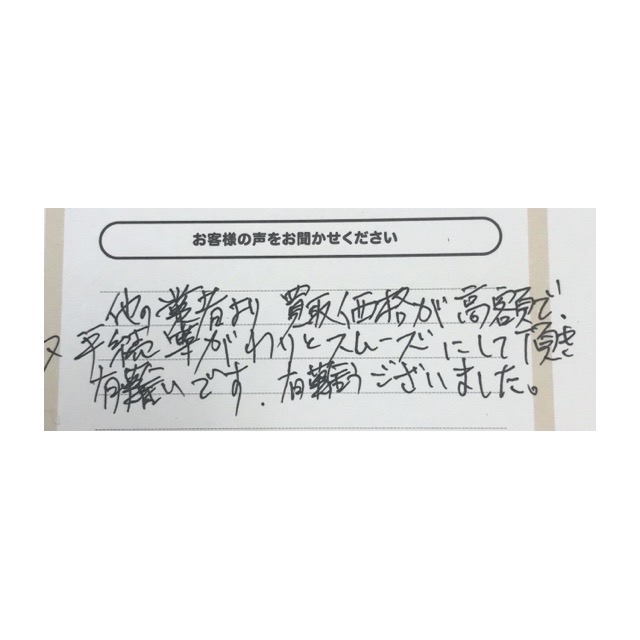 お客様の声をお聞かせください
他の業者より 買取価格が高額で.
又手続事がわりとスムーズにして頂き
有難いです. 有難うございました。